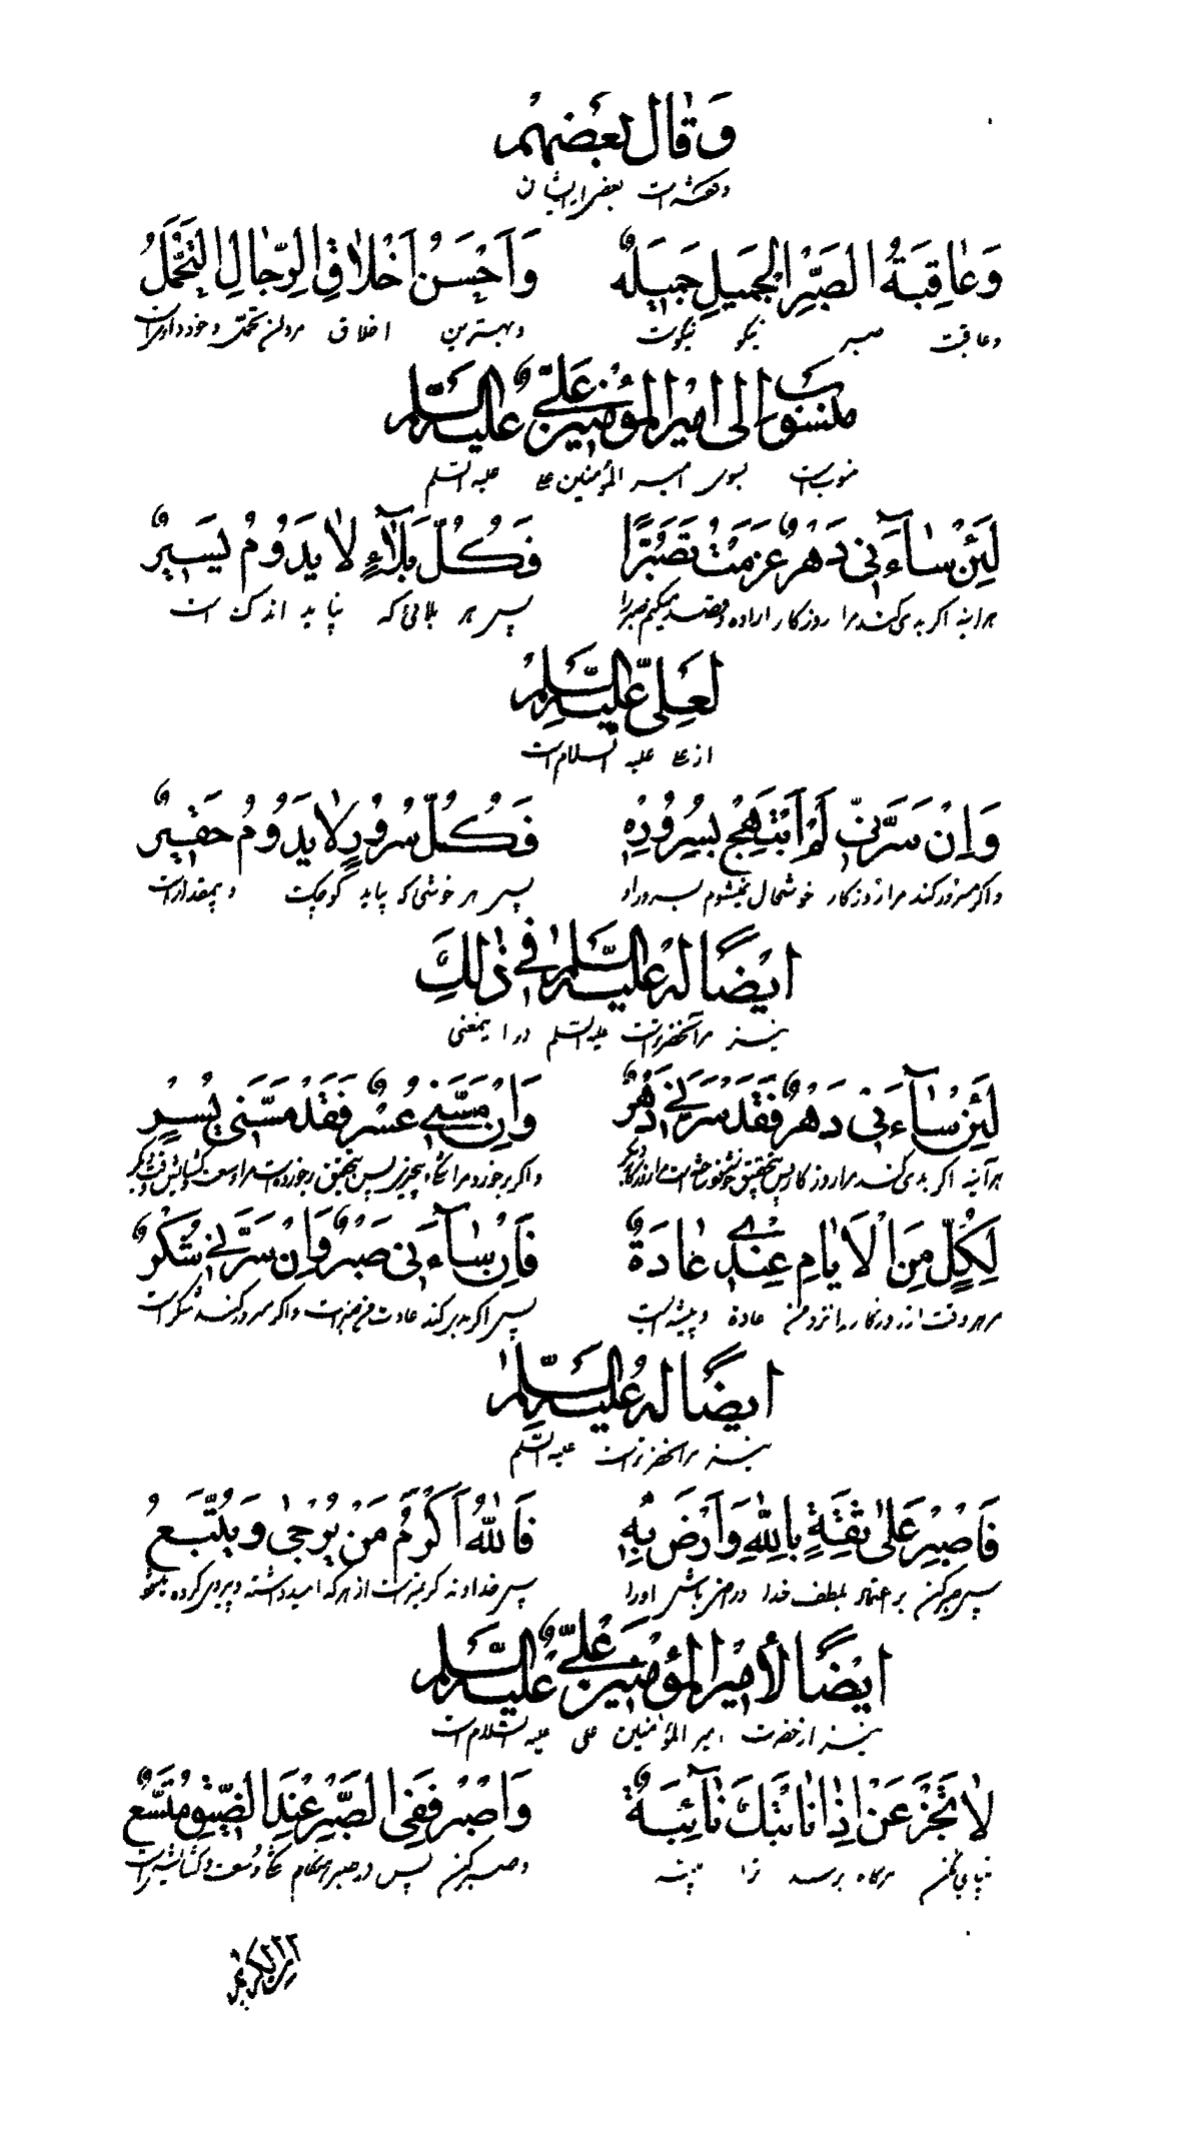 وَقالَ بَعْضُهُمْ
وگفته است بعضی از ایشان
وَعاقِبَةُ الصَّبْرِ الْجَميلِ جَميلَةٌ وَاَحْسَنُ اَخْلاقِ الرِّجالِ التَّحَمُّلُ
وعاقبت صبر نیکو نیکوست وبهترین اخلاق مردان تحمل
مَنسُوب اِلى اميرِ المُؤمِنينَ عَلِىٍّ عَلَيْهِ السَّلام
منسوبست بسوی امیر المؤمنین علی علیه السلم
لَئِنْ ساۤءَنى دَهْرٌ عَزَمْتُ تَصَبُّرًا فَكُلُّ بَلاۤءٍ لا يَدُومُ يَسيرٌ
هر اینه اگر بدی کند مرا روزگار اراده وقصد میکنم صبر را پس هر بلائی که نپاید اندک است
لِعَلىٍّ عَلَيْهِ السَّلامُ
از علی علیه السلام است
وَاِنْ سَرَّنى لَمْ اَبْتَهِجْ بِسُرُورِهِ فَكُلُّ سُرُورٍ لا يَدُومُ حَقيرٌ
واگر مسرور کند مرا روزگار خوشحال نمیشوم بسرور او پس هر خوشی که نپاید کوچک وبیمقدار است
ايضًا لَهُ عَلَيْهِ السَّلامُ فى ذلِكَ
نیز مر آنحضرتراست علیه السلم در اینمعنی
لَئِنْ ساۤءَنى دَهْرٌ فَقَدْ سَرَّنى دَهْرٌ وَاِنْ مَسَّنى عُسْرٌ فَقَدْ مَسَّنى يُسْرٌ
هر آینه اگر بدی کند مرا روزگار پس بتحقیق
لِكُلٍّ مِنَ الْاَيّامِ عِنْدى عادَةٌ فَاِنْ ساۤءَنى صَبْرٌ وَاِنْ سَرَّنى شُكْرٌ
مر هر وقت از روزگار را نزد من عادة وپیشه ایست پس اگر بد کند عادت من صبر است واگر مسرور کند شکر است
ايضًا لَهُ عَلَيْهِ السَّلامُ
نیز مر آنحضرتراست علیه السلم
فَاصْبِرْ عَلى ثِقَةٍ بِاللهِ وَارْضَ بِهِ فَاللهُ اَكْرَمُ مَنْ يُرْجى وَيُتَّبَعُ
پس صبر کن بر اعتماد بلطف خدا وراضی باش او را پس خداوند کریمتر است از هر که امید داشته وپیروی کرده میشود
ايضًا لأميرِ المُؤمِنينَ عَلِىٍّ عَلَيْهِ السَّلام
نیز از حضرت امیر المؤمنین علی علیه السلام است
لا تَجْزَعَنْ اِذا نابَتْكَ ناۤئِبَةٌ وَاصْبِرْ فَفِى الصَّبْرِ عِنْدَ الضّيقِ مُتَّسَعٌ
بیتابی مکن هرگاه برسد ترا وصبر کن پس در صبر هنگام